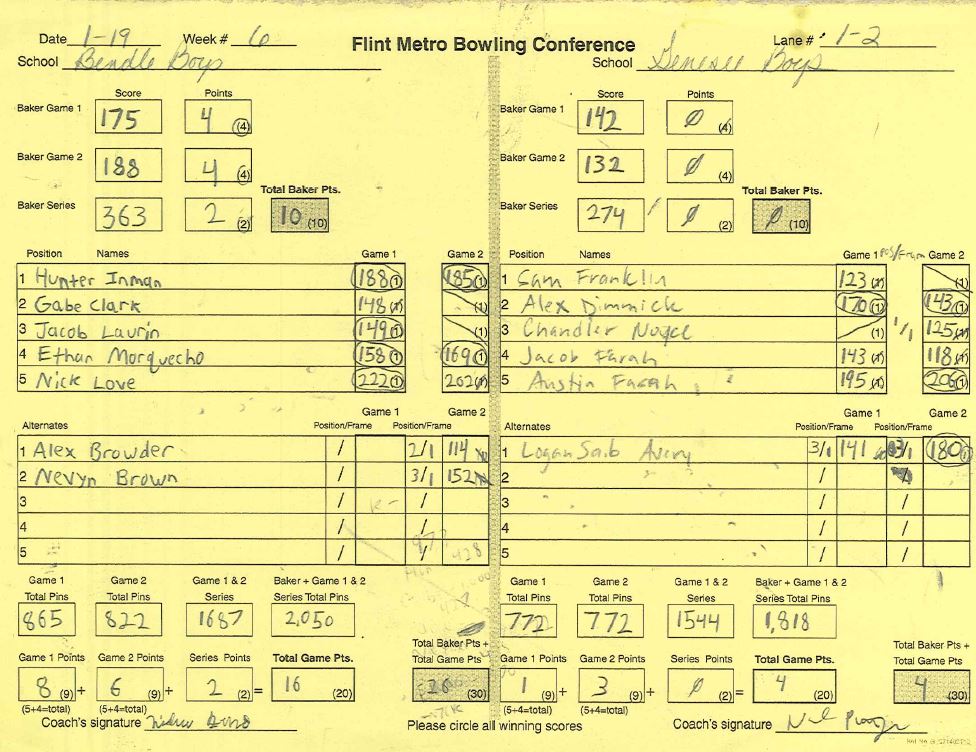 Date 1-19 Week # 6 Flint Metro Bowling Conference Lane # 1-2
School Bendle Boys School Genesee Boys
Score Points Score Points
Baker Game 1 175 4 (4) Baker Game 1 142 0 (4)
Baker Game 2 188 4 (4) Baker Game 2 132 0 (4)
Total Baker Pts. Total Baker Pts.
Baker Series 363 2 (2) 10 (10) Baker Series 274 0 (2) 0 (10)
Position Names Game 1 Game 2 Position Names Game 1 pos/Fram Game 2
1 Hunter Inman 188 (1) 185 (1) 1 Sam Franklin 123 (1) (1)
2 Gabe Clark 148 (1) (1) 2 Alex Dimmick 170 (1) 143 (1)
3 Jacob Laurin 149 (1) (1) 3 Chandler (1) 1/1 125 (1)
4 Ethan Morquecho 158 (1) 169 (1) 4 Jacob Farah 143 (1) 118 (1)
5 Nick Love 222 (1) 202 (1) 5 Austin Farah 195 (1) 206 (1)
Game 1 Game 2 Game 1 Game 2
Alternates Position/Frame Position/Frame Alternates Position/Frame Position/Frame
1 Alex Browder / 2/1 114 1 Logan Avery 3/1 141 3/1 180 (1)
2 Nevyn Brown / 3/1 152 2 /
3 / / 3 / /
4 / / 4 / /
5 / / 5 / /
428
Game 1 Game 2 Game 1 & 2 Baker + Game 1 & 2 Game 1 Game 2 Game 1 & 2 Baker + Game 1 & 2
Total Pins Total Pins Series Series Total Pins Total Pins Total Pins Series Series Total Pins
865 822 1687 2,050 772 772 1544 1,818
Total Baker Pts + Total Baker Pts +
Game 1 Points Game 2 Points Series Points Total Game Pts. Total Game Pts Game 1 Points Game 2 Points Series Points Total Game Pts. Total Game Pts
8 (9) + 6 (9) + 2 (2) = 16 (20) 26 (30) 1 (9) + 3 (9) + 0 (2) = 4 (20) 4 (30)
(5+4=total) (5+4=total) (5+4=total) (5+4=total)
Coach's signature Please circle all winning scores Coach's signature